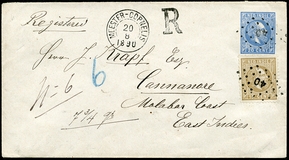 Registered
MEESTER-CORNELIS
20
6
1890
R
Herrn J. Krapf Esq.
Cannanore
Malabar Coast
East Indies.
N=6
6
7 3/4 gr